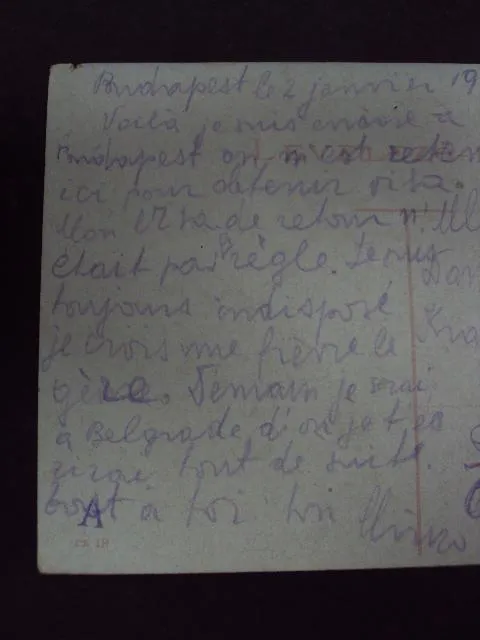 Budapest le 2 janvier 19
Voilà je suis encore à
Budapest on m'est reten
ici pour obtenir visa.
Mon visa de retour n'
était pas règle. Je suis
toujours indisposé
je crois une fièvre le
gère. Demain je serai
à Belgrade d'ou je t'é
cirai tout de suite.
tout à toi ton
A